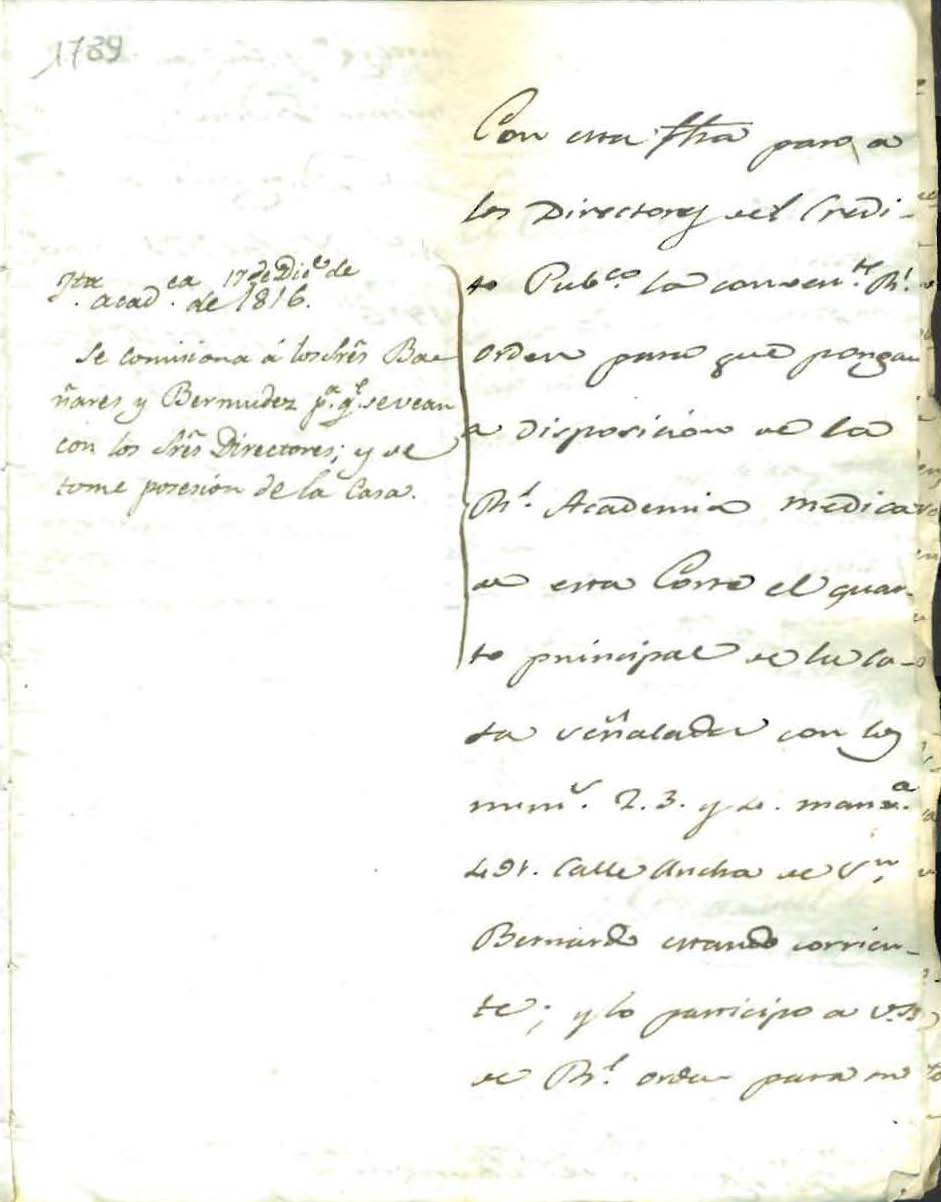 1789
Jta acad.ca 17 de Dice de
de 1816.
Se comisiona á los Srēs Ba-
ñares y Bermudez pa. ql. se vean
con los Srēs Directores; y se
tome posesion de la Casa.
Con esta fhā paso a
los Directores del Credi-
to Pubco la conven.te Rl.
orden para que pongan
a disposicion de la
Rl. Academia medica
de esta Corte el quar-
to principal de la Ca-
sa señalada con los
nums. 2. 3. y 4. manza.
491. Calle Ancha de Sn.
Bernardo estando corrien-
te; y lo participo a V.S.
de Rl. orden para su